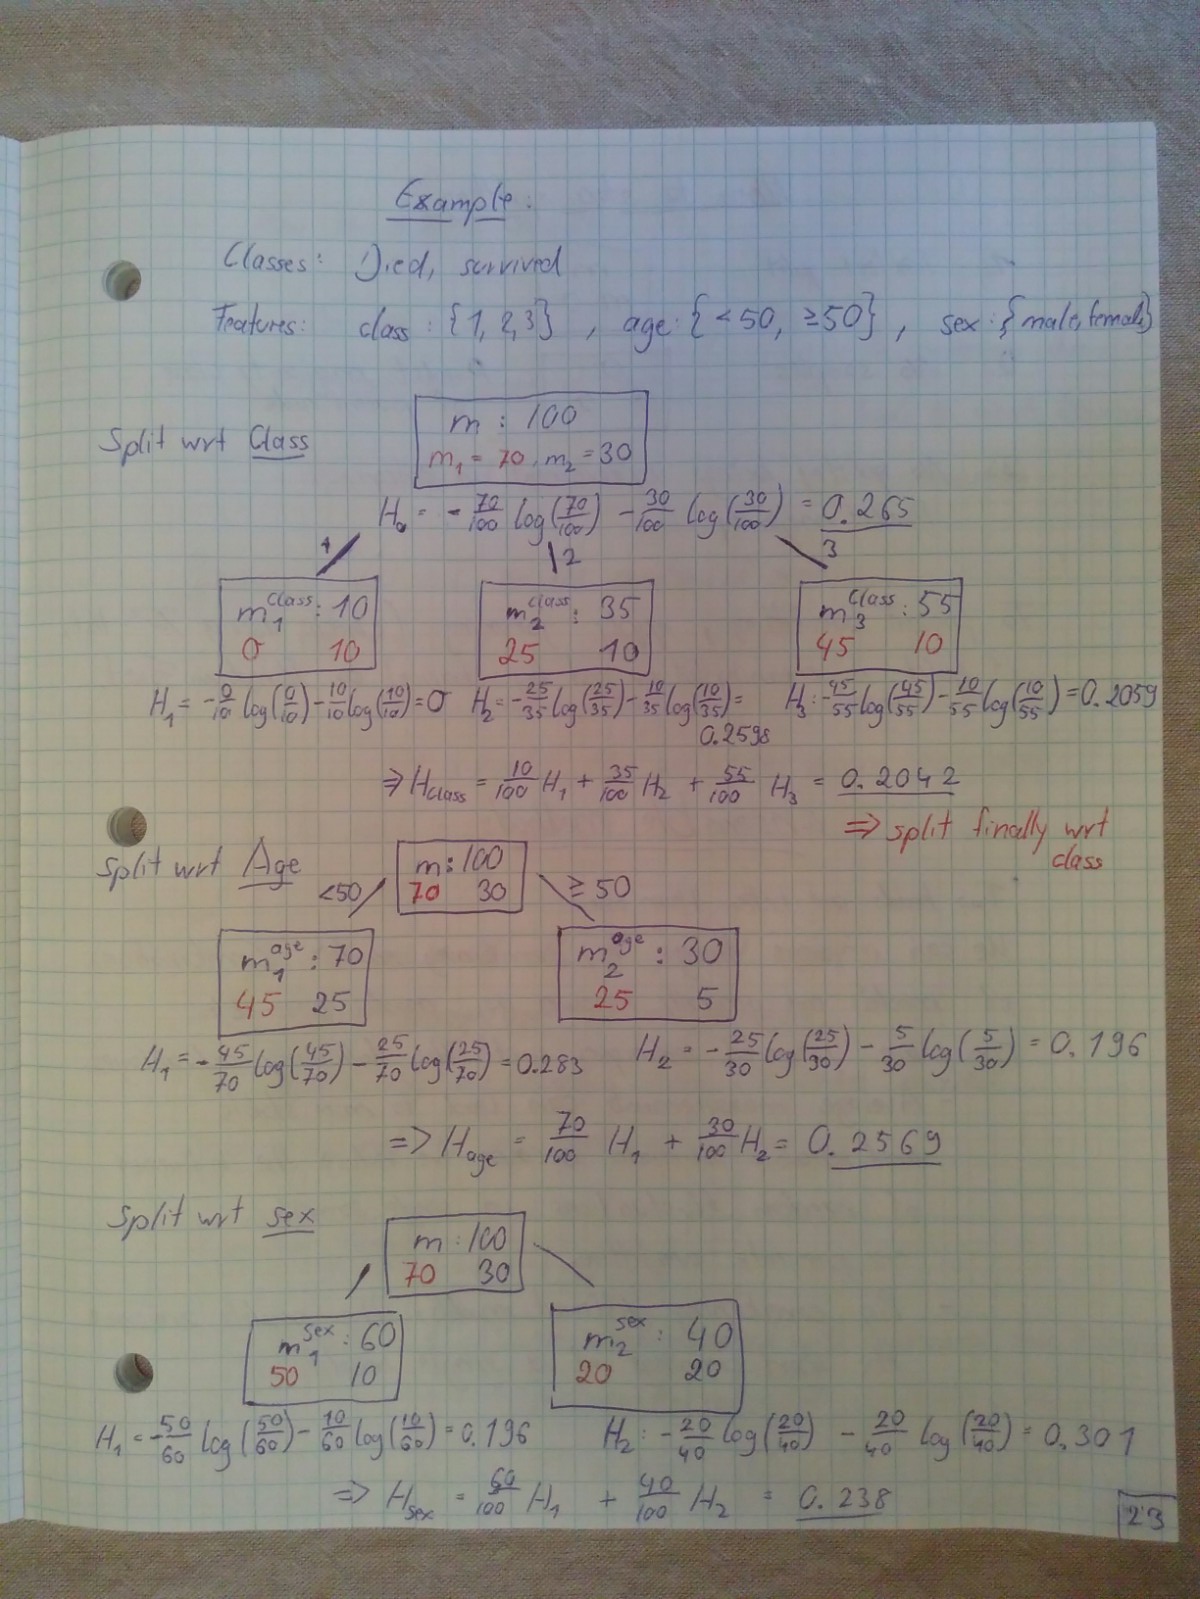 Example:
Classes: Died, survived
Features: class : {1, 2, 3} , age: {<50, ≥50} , sex: {male, female}
Split wrt Class
m : 100
m₁ = 70, m₂ = 30
H₀ = -70/100 log(70/100) - 30/100 log(30/100) = 0.265
1 2 3
m₁^class : 10 m₂^class : 35 m₃^class : 55
0 10 25 10 45 10
H₁ = -0/10 log(0/10) - 10/10 log(10/10) = 0 H₂ = -25/35 log(25/35) - 10/35 log(10/35) = H₃: -45/55 log(45/55) - 10/55 log(10/55) = 0.2059
0.2598
⇒ H_class = 10/100 H₁ + 35/100 H₂ + 55/100 H₃ = 0.2042
⇒ split finally wrt
class
Split wrt Age
m: 100
<50 70 30 ≥ 50
m₁^age : 70 m₂^age : 30
45 25 25 5
H₁ = -45/70 log(45/70) - 25/70 log(25/70) = 0.283 H₂ = -25/30 log(25/30) - 5/30 log(5/30) = 0.196
=> H_age = 70/100 H₁ + 30/100 H₂ = 0.2569
Split wrt sex
m : 100
70 30
m₁^sex : 60 m₂^sex : 40
50 10 20 20
H₁ = -50/60 log(50/60) - 10/60 log(10/60) = 0.196 H₂: -20/40 log(20/40) - 20/40 log(20/40) = 0.301
=> H_sex = 60/100 H₁ + 40/100 H₂ = 0.238
23